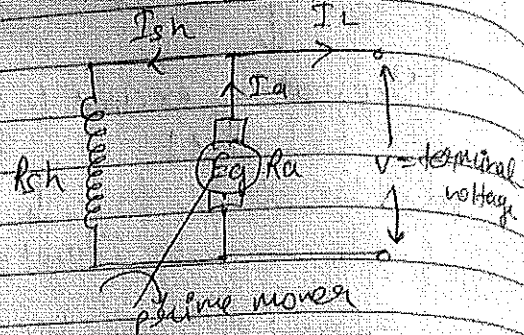 Ish
IL
Ia
Rsh
Eg
Ra
V = terminal
voltage
prime mover